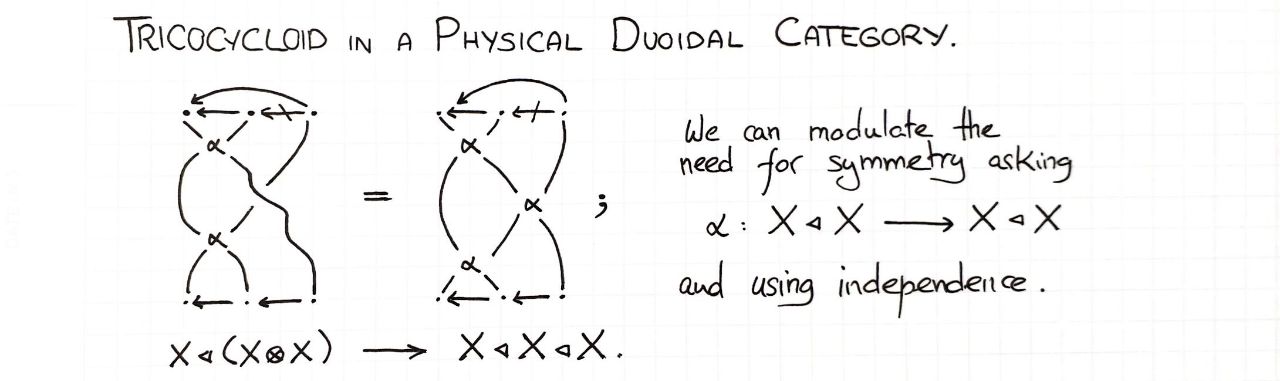 TRICOCYCLOID IN A PHYSICAL DUOIDAL CATEGORY.
α
α
=
α
α
α
;
We can modulate the
need for symmetry asking
α : X ◃ X ⟶ X ◃ X
and using independence.
X ◃ (X ⊗ X) ⟶ X ◃ X ◃ X.